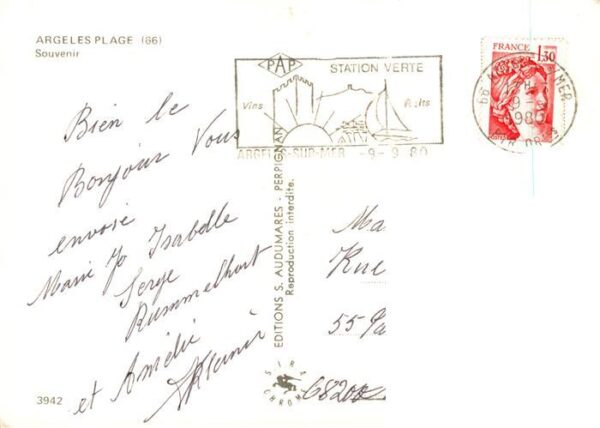 ARGELES PLAGE (66)
Souvenir
PAP
STATION VERTE
Vins
Fruits
ARGELES-SUR-MER -9-9 80
FRANCE
1,30
66 ARGELES S MER
1980
PYR. OR.
Bien le
Bonjour Vous
envoie
Marie Jo Isabelle
Serge
Rummelhart
et Amélie
EDITIONS S. AUDUMARES - PERPIGNAN
Reproduction interdite.
Ma
Rue
55
68200
3942